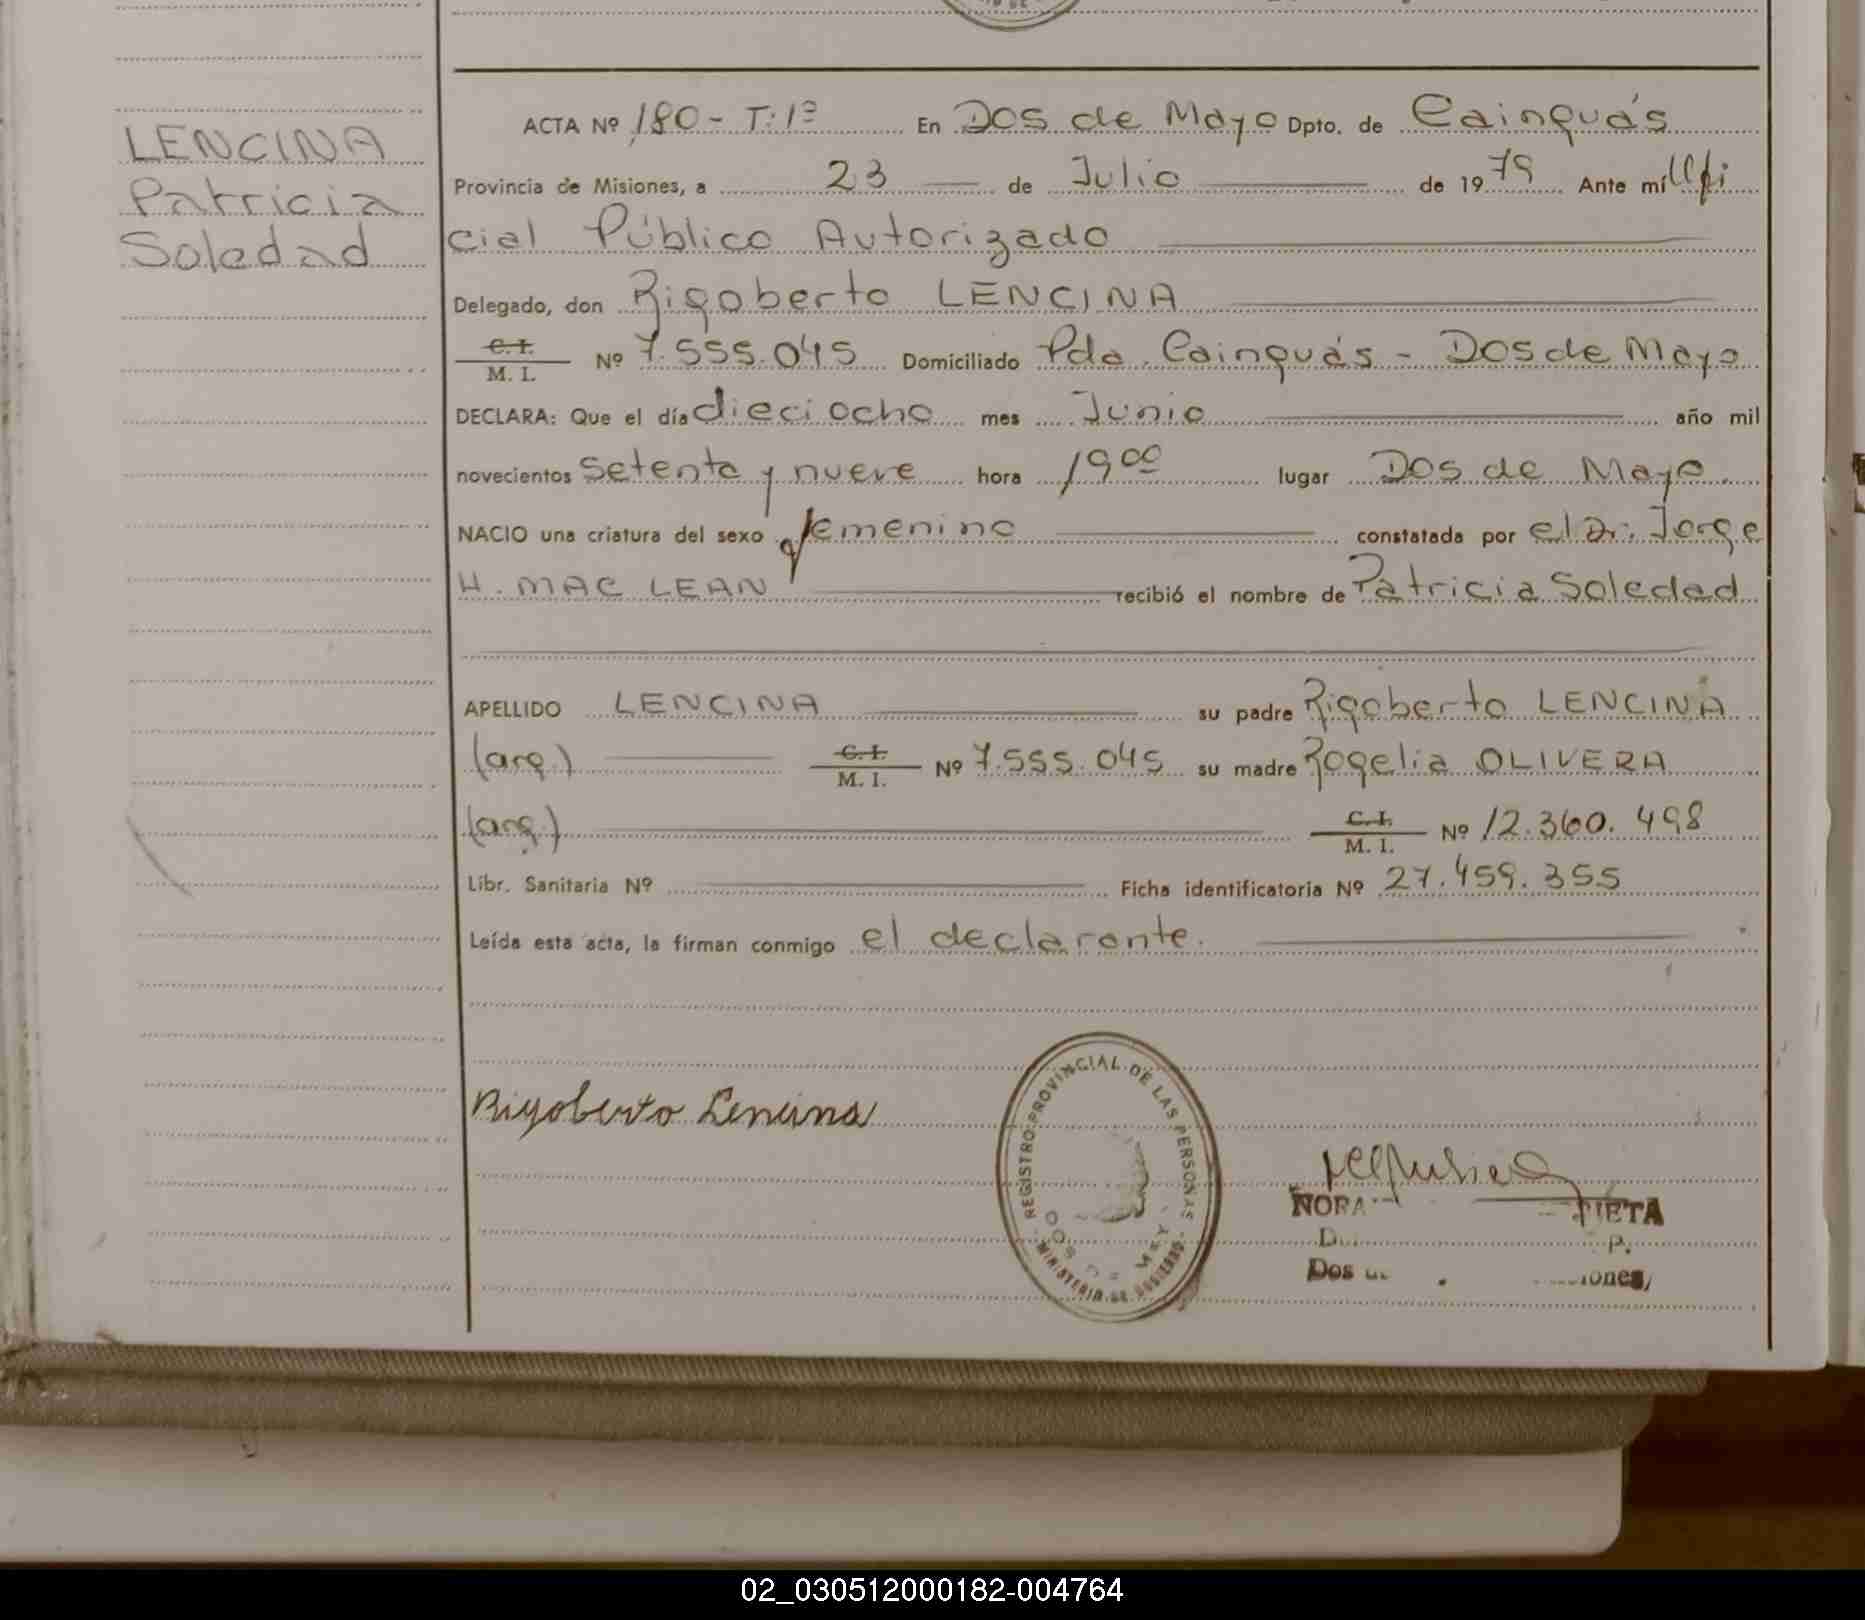 LENCINA
Patricia
Soledad
ACTA Nº 180 - T: 1º En Dos de Mayo Dpto. de Cainguás
Provincia de Misiones, a 23 de Julio de 1979 Ante mí Ofi
cial Público Autorizado
Delegado, don Rigoberto LENCINA
C. I.
M. I. Nº 7.555.045 Domiciliado Pda. Cainguás - Dos de Mayo
DECLARA: Que el día dieciocho mes Junio año mil
novecientos setenta y nueve hora 19 00 lugar Dos de Mayo.
NACIO una criatura del sexo femenino constatada por el Dr. Jorge
H. MAC LEAN recibió el nombre de Patricia Soledad
APELLIDO LENCINA su padre Rigoberto LENCINA
(arg.) C. I.
M. I. Nº 7.555.045 su madre Rogelia OLIVERA
(arg.) C. I.
M. I. Nº 12.360.498
Libr. Sanitaria Nº Ficha identificatoria Nº 27.459.355
Leída esta acta, la firman conmigo el declarante.
Rigoberto Lencina
REGISTRO PROVINCIAL DE LAS PERSONAS
DOS DE MAYO
MINISTERIO DE GOBIERNO
NORA
Dos
02_030512000182-004764